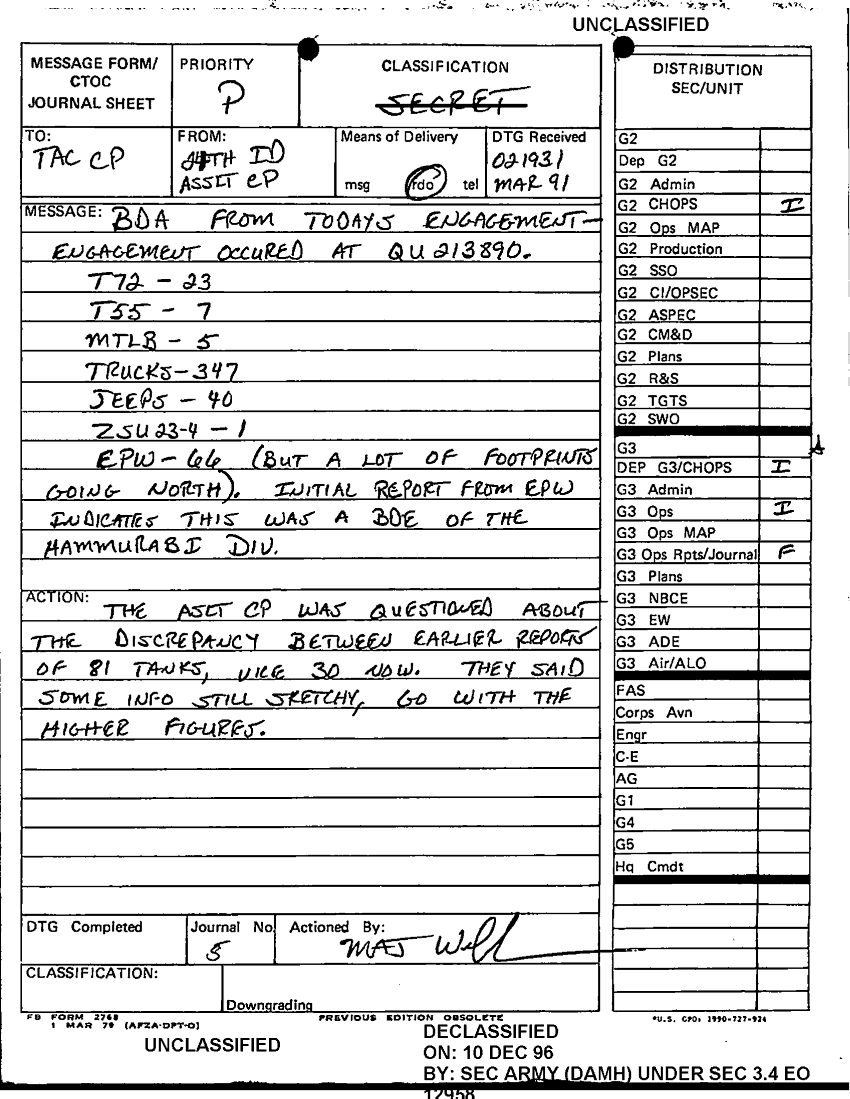 UNCLASSIFIED
MESSAGE FORM/
CTOC
JOURNAL SHEET
PRIORITY
P
CLASSIFICATION
SECRET
TO:
TAC CP
FROM:
24TH ID
ASSLT CP
Means of Delivery
msg rdo tel
DTG Received
021931
MAR 91
MESSAGE: BDA FROM TODAYS ENGAGEMENT—
ENGAGEMENT OCCURED AT QU213890.
T72 - 23
T55 - 7
MTLB - 5
TRUCKS - 347
JEEPS - 40
ZSU 23-4 - 1
EPW - 66 (BUT A LOT OF FOOTPRINTS
GOING NORTH). INITIAL REPORT FROM EPW
INDICATES THIS WAS A BDE OF THE
HAMMURABI DIV.
ACTION: THE ASLT CP WAS QUESTIONED ABOUT
THE DISCREPANCY BETWEEN EARLIER REPORTS
OF 81 TANKS, VICE 30 NOW. THEY SAID
SOME INFO STILL SKETCHY, GO WITH THE
HIGHER FIGURES.
DTG Completed
Journal No
5
Actioned By:
MAJ
CLASSIFICATION:
Downgrading
FB FORM 2768
1 MAR 79 (AFZA-DPT-O)
PREVIOUS EDITION OBSOLETE
DISTRIBUTION
SEC/UNIT
G2
Dep G2
G2 Admin
G2 CHOPS I
G2 Ops MAP
G2 Production
G2 SSO
G2 CI/OPSEC
G2 ASPEC
G2 CM&D
G2 Plans
G2 R&S
G2 TGTS
G2 SWO
G3
DEP G3/CHOPS I
G3 Admin
G3 Ops I
G3 Ops MAP
G3 Ops Rpts/Journal F
G3 Plans
G3 NBCE
G3 EW
G3 ADE
G3 Air/ALO
FAS
Corps Avn
Engr
C-E
AG
G1
G4
G5
Hq Cmdt
*U.S. GPO: 1990-727-924
UNCLASSIFIED
DECLASSIFIED
ON: 10 DEC 96
BY: SEC ARMY (DAMH) UNDER SEC 3.4 EO
12958